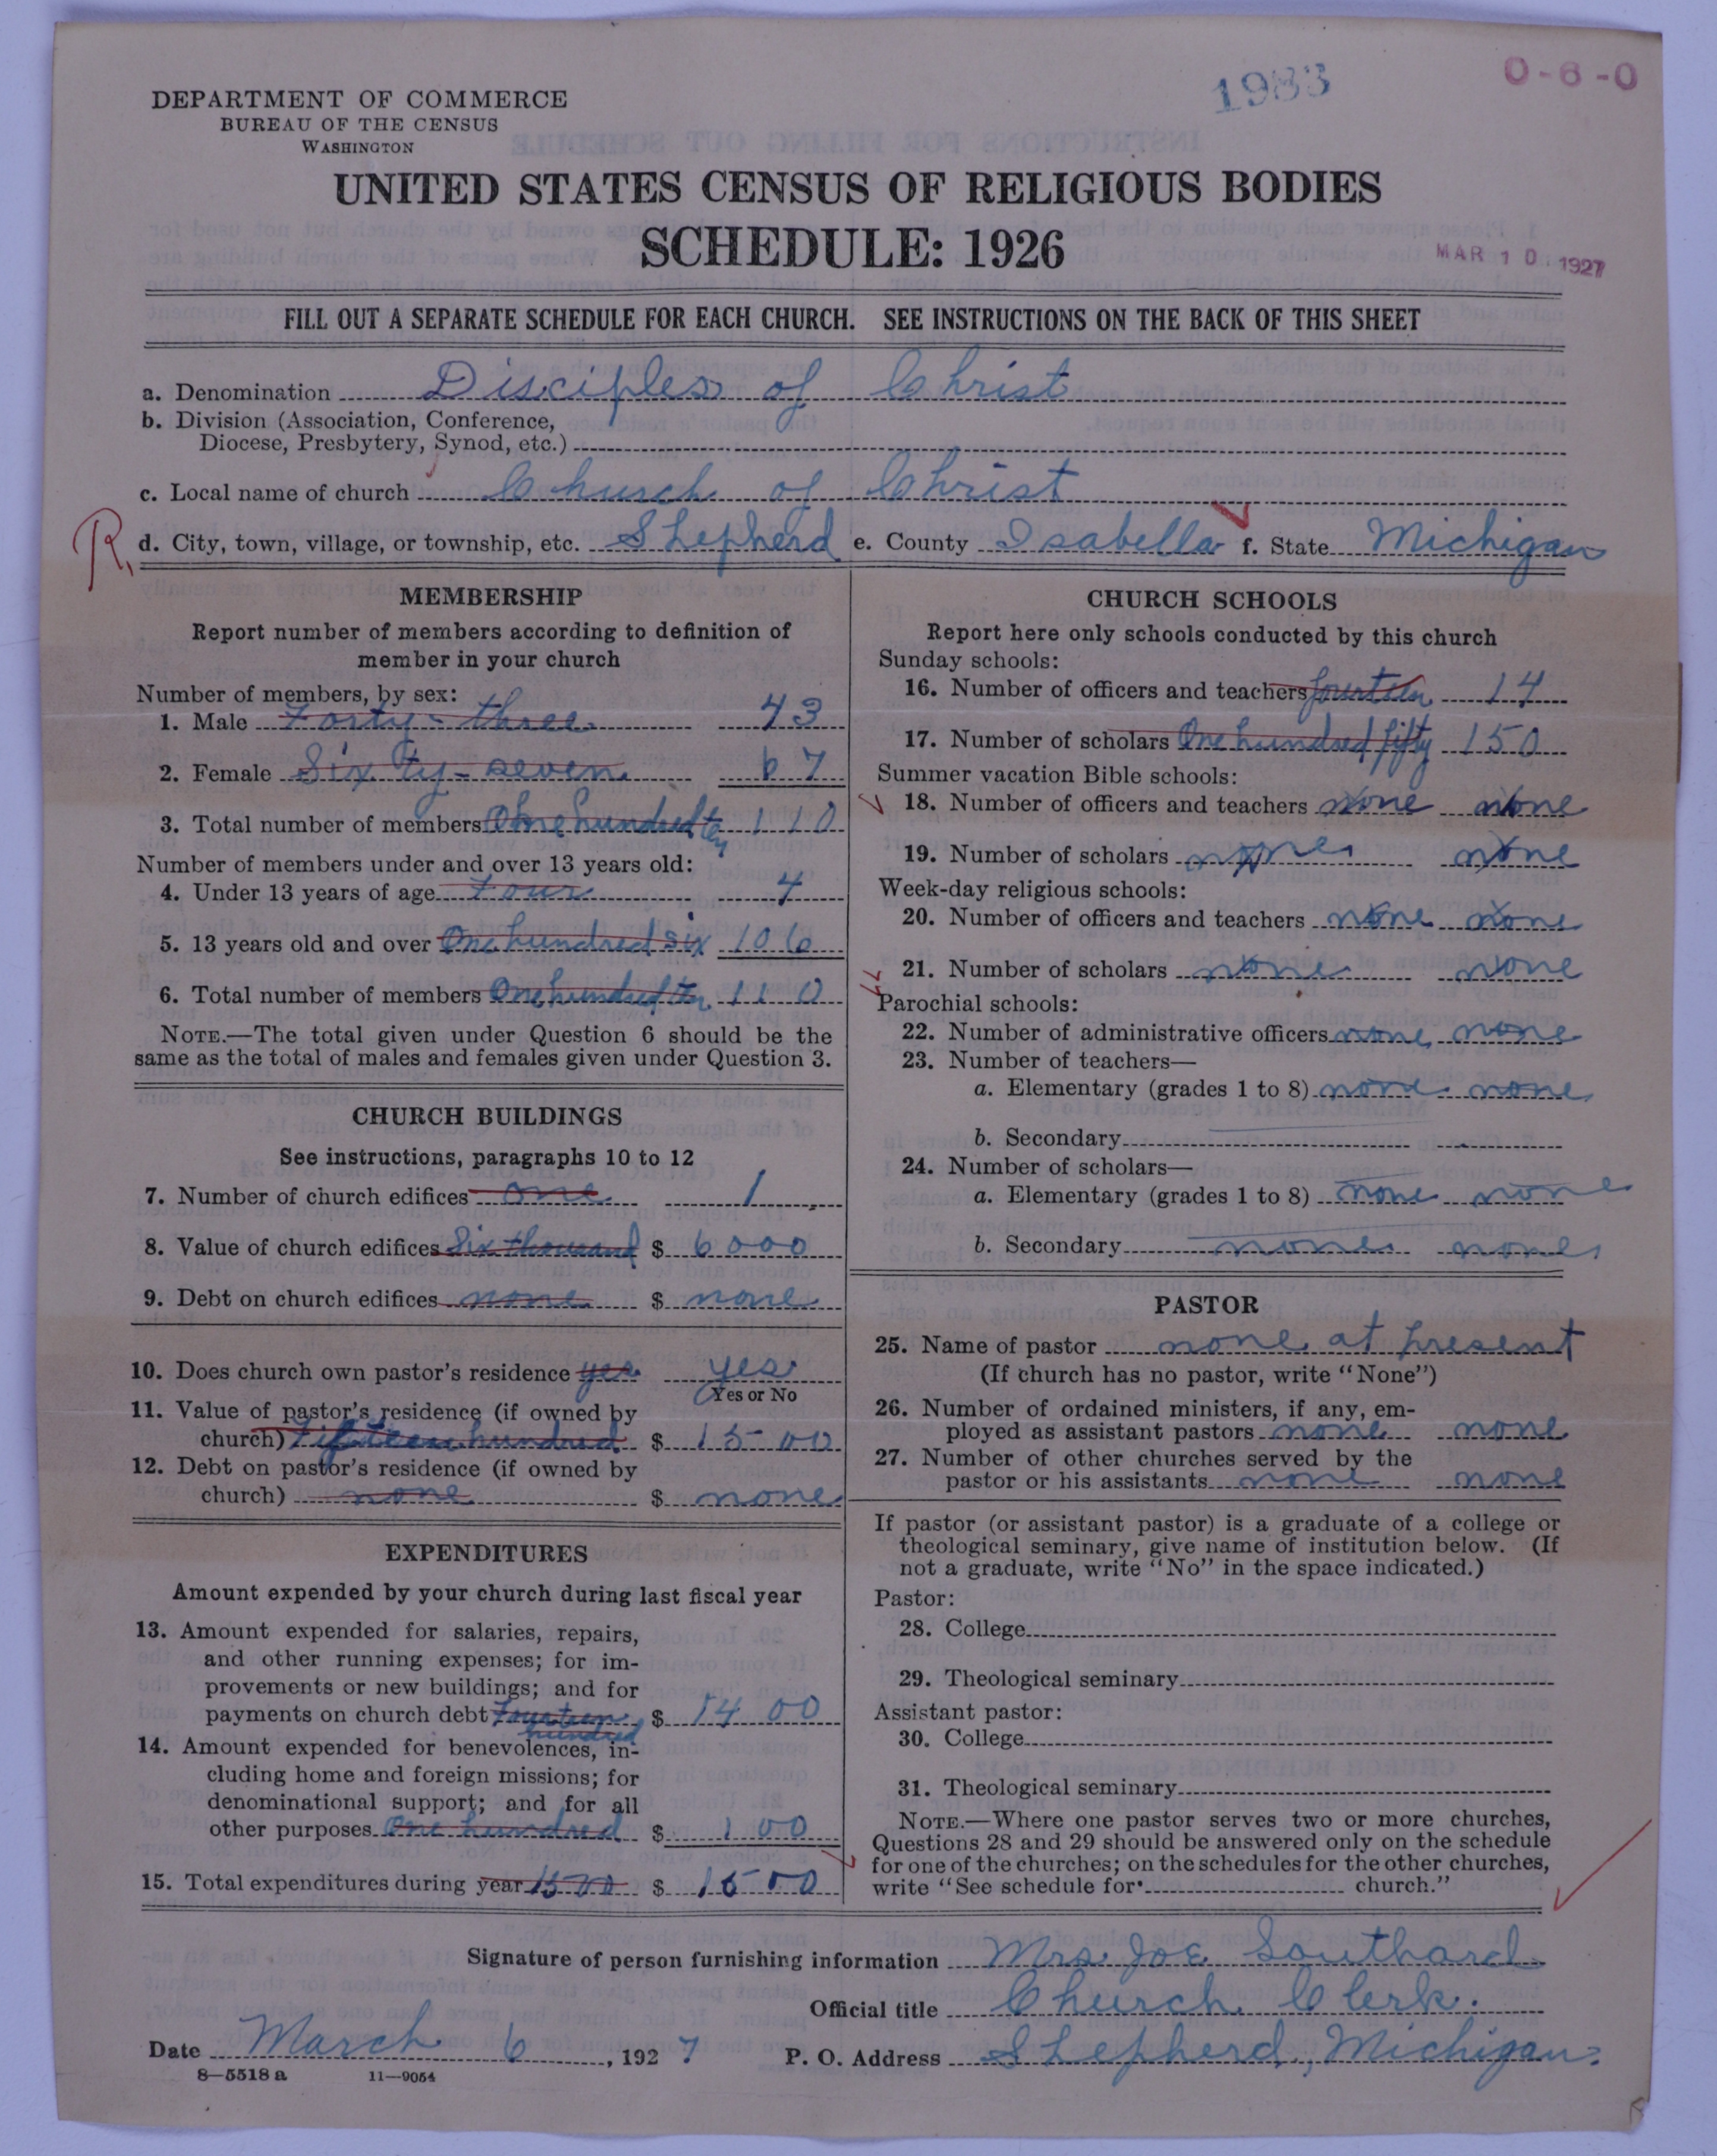 1983
0-6-0
DEPARTMENT OF COMMERCE
BUREAU OF THE CENSUS
WASHINGTON
UNITED STATES CENSUS OF RELIGIOUS BODIES
SCHEDULE: 1926
MAR 10 1927
FILL OUT A SEPARATE SCHEDULE FOR EACH CHURCH. SEE INSTRUCTIONS ON THE BACK OF THIS SHEET
a. Denomination Disciples of Christ
b. Division (Association, Conference,
Diocese, Presbytery, Synod, etc.)
c. Local name of church Church of Christ
R. d. City, town, village, or township, etc. Shepherd e. County Isabella f. State Michigan
MEMBERSHIP
Report number of members according to definition of
member in your church
Number of members, by sex:
1. Male Forty-three 43
2. Female Sixty-seven 67
3. Total number of members One hundred ten 110
Number of members under and over 13 years old:
4. Under 13 years of age Four 4
5. 13 years old and over One hundred six 106
6. Total number of members One hundred ten 110
NOTE.—The total given under Question 6 should be the
same as the total of males and females given under Question 3.
CHURCH BUILDINGS
See instructions, paragraphs 10 to 12
7. Number of church edifices one 1
8. Value of church edifices Six thousand $ 6000
9. Debt on church edifices none $ none
10. Does church own pastor's residence yes yes
Yes or No
11. Value of pastor's residence (if owned by
church) Fifteen hundred $ 1500
12. Debt on pastor's residence (if owned by
church) none $ none
EXPENDITURES
Amount expended by your church during last fiscal year
13. Amount expended for salaries, repairs,
and other running expenses; for im-
provements or new buildings; and for
payments on church debt Fourteen hundred $ 1400
14. Amount expended for benevolences, in-
cluding home and foreign missions; for
denominational support; and for all
other purposes One hundred $ 100
15. Total expenditures during year 1500 $ 1500
CHURCH SCHOOLS
Report here only schools conducted by this church
Sunday schools:
16. Number of officers and teachers fourteen 14
17. Number of scholars One hundred fifty 150
Summer vacation Bible schools:
18. Number of officers and teachers none none
19. Number of scholars none none
Week-day religious schools:
20. Number of officers and teachers none none
21. Number of scholars none none
Parochial schools:
22. Number of administrative officers none none
23. Number of teachers—
a. Elementary (grades 1 to 8) none none
b. Secondary
24. Number of scholars—
a. Elementary (grades 1 to 8) none none
b. Secondary none none
PASTOR
25. Name of pastor none at present
(If church has no pastor, write "None")
26. Number of ordained ministers, if any, em-
ployed as assistant pastors none none
27. Number of other churches served by the
pastor or his assistants none none
If pastor (or assistant pastor) is a graduate of a college or
theological seminary, give name of institution below. (If
not a graduate, write "No" in the space indicated.)
Pastor:
28. College
29. Theological seminary
Assistant pastor:
30. College
31. Theological seminary
NOTE.—Where one pastor serves two or more churches,
Questions 28 and 29 should be answered only on the schedule
for one of the churches; on the schedules for the other churches,
write "See schedule for church."
Signature of person furnishing information Mrs Joe Southard
Official title Church Clerk.
Date March 6, 1927 P. O. Address Shepherd, Michigan.
8—5518 a 11—9054